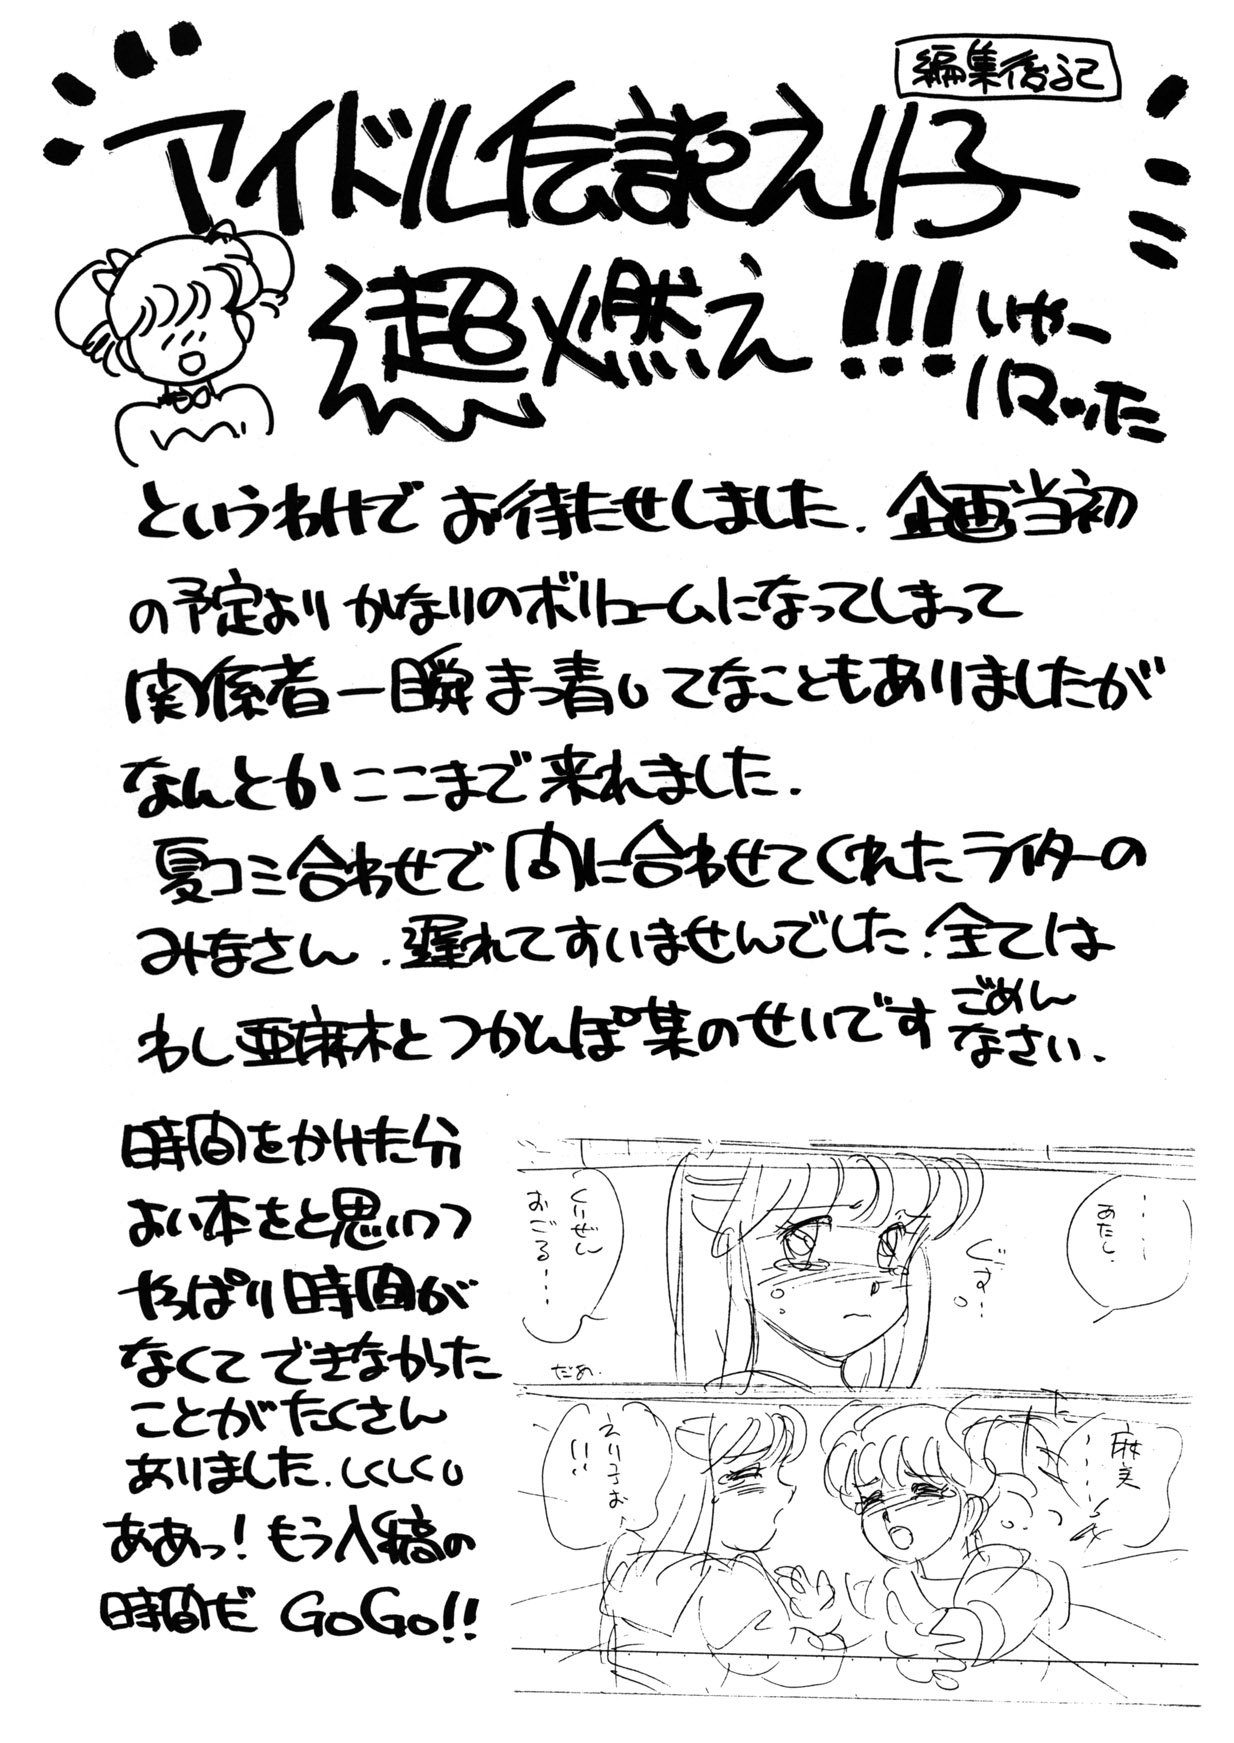 編集後記
アイドル伝説えり子
超燃え!!!
いやー
ハマッた
というわけで お待たせしました. 企画当初
の予定より かなりのボリュームになってしまって
関係者一瞬まっ青してなこともありましたが
なんとか ここまで 来れました.
夏コミ合わせで 間に合わせてくれた ライターの
みなさん. 遅れてすいませんでした. 全ては
わし亜麻木と つかとんぽ葉のせいです ごめん
なさい.
時間をかけた分
よい本をと思いつつ
やっぱり時間が
なくて できなかった
ことが たくさん
ありました. しくしくし
ああっ! もう入稿の
時間だ GoGo!!
……
あたし.
ぐす…
くりぜん
おごる……
だめ.
麻美
……
えり子ぉ
!!